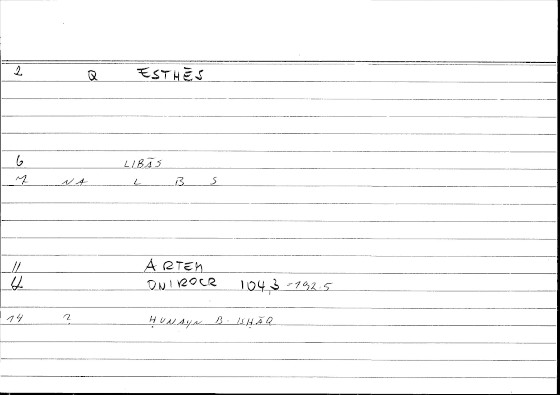 2 Q ESTHĒS
6 LIBĀS
7 NA L B S
11 ARTEM
ONIROCR 104,3 - 192.5
14 ? ḤUNAYN B. ISḤĀQ